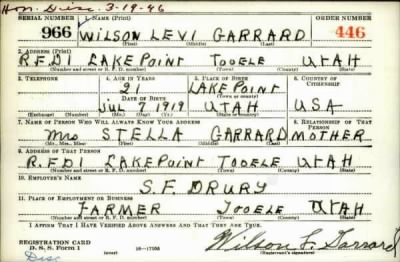 Hon. Disc. 3-19-46
SERIAL NUMBER 1. NAME (Print) ORDER NUMBER
966 WILSON LEVI GARRARD 446
(First) (Middle) (Last)
2. ADDRESS (Print)
R.F.D1 LAKEPOINT TOOELE UTAH
(Number and street or R. F. D. number) (Town) (County) (State)
3. TELEPHONE 4. AGE IN YEARS 5. PLACE OF BIRTH 6. COUNTRY OF CITIZENSHIP
21 LAKEPOINT
(Town or county)
DATE OF BIRTH
JUL 7 1919 UTAH USA
(Exchange) (Number) (Mo.) (Day) (Yr.) (State or country)
7. NAME OF PERSON WHO WILL ALWAYS KNOW YOUR ADDRESS 8. RELATIONSHIP OF THAT PERSON
Mrs STELLA GARRARD MOTHER
(Mr., Mrs., Miss) (First) (Middle) (Last)
9. ADDRESS OF THAT PERSON
R.F.D1 LAKEPOINT TOOELE UTAH
(Number and street or R. F. D. number) (Town) (County) (State)
10. EMPLOYER'S NAME
S.F. DRURY
11. PLACE OF EMPLOYMENT OR BUSINESS
FARMER TOOELE UTAH
(Number and street or R. F. D. number) (Town) (County) (State)
I AFFIRM THAT I HAVE VERIFIED ABOVE ANSWERS AND THAT THEY ARE TRUE.
REGISTRATION CARD
D. S. S. Form 1 (over) Wilson L. Garrard
(Registrant's signature)
Disc